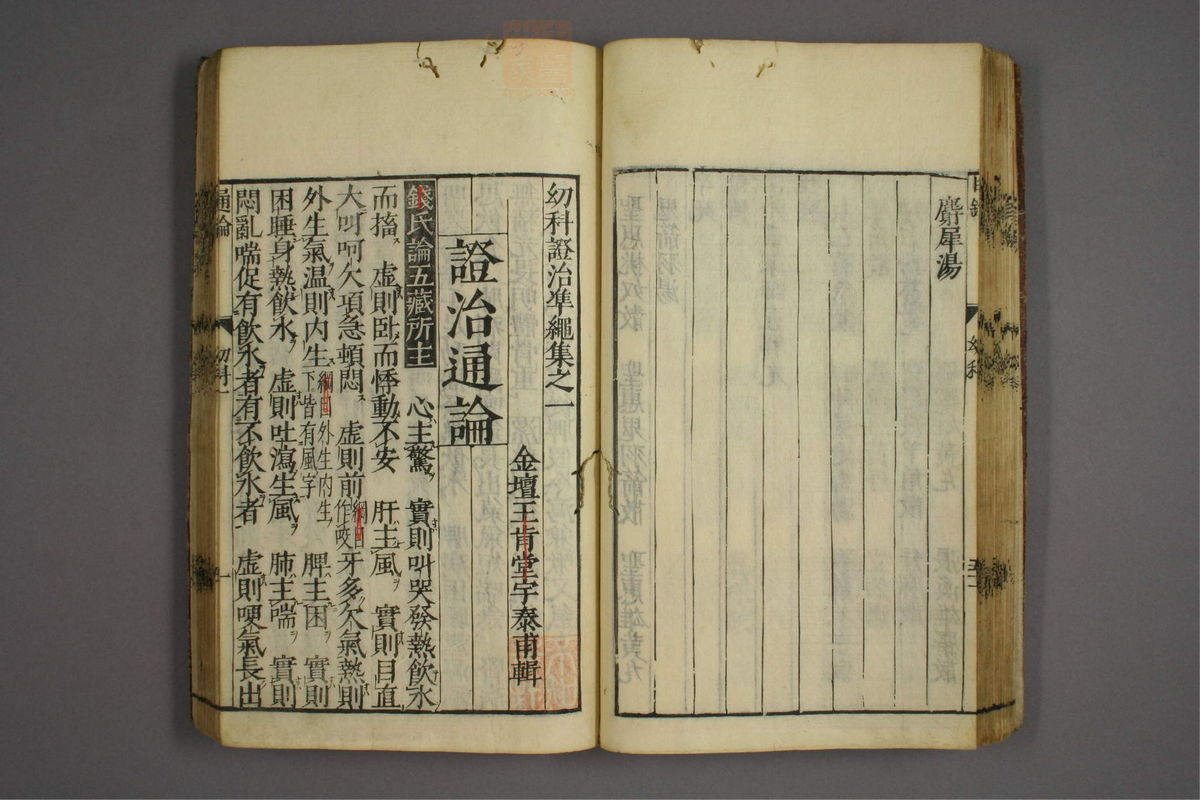 麝犀湯
幼科證治準繩集之一
金壇王肯堂宇泰甫輯
證治通論
錢氏論五藏所主　心主驚　實則叫哭發熱飲水
而搐　虛則臥而悸動不安　肝主風　實則目直
大呵呵欠項急頓悶　虛則前綱目作咬牙多欠氣熱則
外生氣温則内生綱目外生内生下皆有風字　脾主困　實則
困睡身熱飲水　虛則吐瀉生風　肺主喘　實則
悶亂喘促有飲水者有不飲水者　虛則哽氣長出
通論　幼科一　一